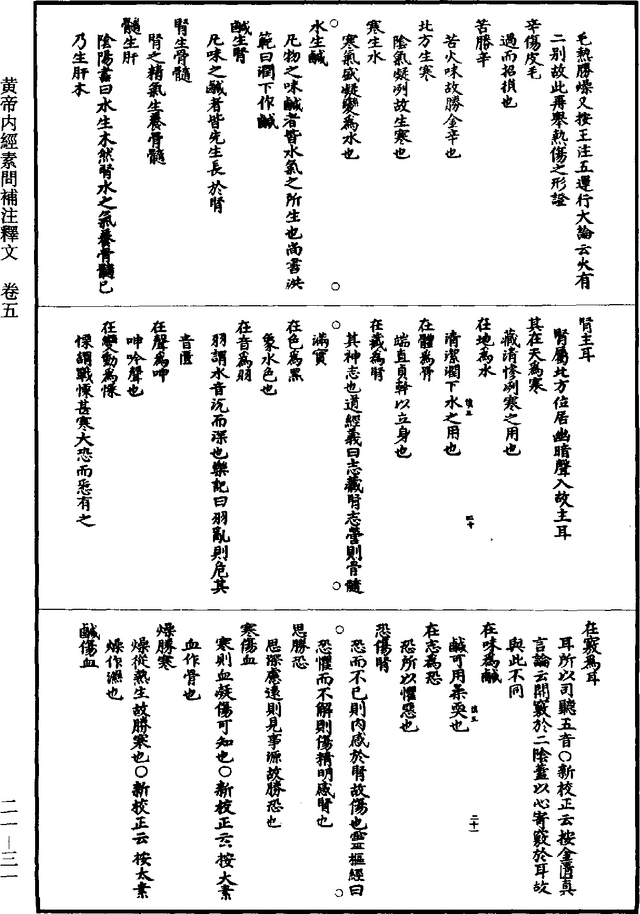 毛熱勝燥又按王注五運行大論云火有
二別故此再舉熱傷之形證
辛傷皮毛
過而招損也
苦勝辛
苦火味故勝金辛也
北方生寒
陰氣凝冽故生寒也
寒生水
寒氣盛凝變為水也
水生鹹
凡物之味鹹者皆水氣之所生也尚書洪
範曰潤下作鹹
鹹生腎
凡味之鹹者皆先生長於腎
腎生骨髓
腎之精氣生養骨髓
髓生肝
陰陽書曰水生木然腎水之氣養骨髓已
乃生肝木
腎主耳
腎屬北方位居幽暗聲入故主耳
其在天為寒
嚴清慘冽寒之用也
在地為水
清潔潤下水之用也
在體為骨
端直貞幹以立身也
在藏為腎
其神志也道經義曰志藏腎志營則骨髓
滿實
在色為黑
象水色也
在音為羽
羽謂水音沉而深也樂記曰羽亂則危其
財匱
在聲為呻
呻吟聲也
在變動為慄
慄謂戰慄甚寒大恐而悉有之
在竅為耳
耳所以司聽五音○新校正云按金匱真
言論云開竅於二陰蓋以心寄竅於耳故
與此不同
在味為鹹
鹹可用柔耎也
在志為恐
恐所以懼惡也
恐傷腎
恐而不已則內感於腎故傷也靈樞經曰
恐懼而不解則傷精明感腎也
思勝恐
思深慮遠則見事源故勝恐也
寒傷血
寒則血凝傷可知也○新校正云按大素
血作骨也
燥勝寒
燥從熱生故勝寒也○新校正云按太素
燥作濕也
鹹傷血
黄帝内經素問補注釋文 卷五
二一—三一